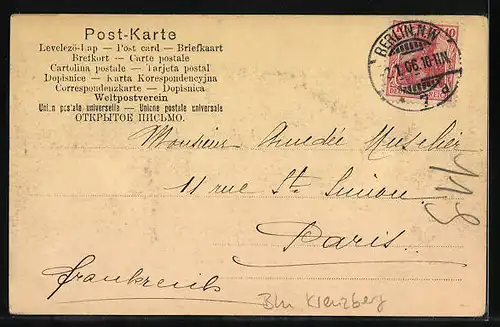 Post-Karte
Levelező-Lap — Post card — Briefkaart
Brefkort — Carte postale
Cartolina postale — Tarjeta postal
Dopisnice — Karta Korespondencyjna
Correspondenzkarte — Dopisnica
Weltpostverein
Union postale universelle — Unione postale universale
ОТКРЫТОЕ ПИСЬМО.
BERLIN N.W.
06. 10-11N.
7 d
10
Monsieur Amedée
11 rue St. Simon.
Paris.
Frankreich
119
Bln Kreuzberg